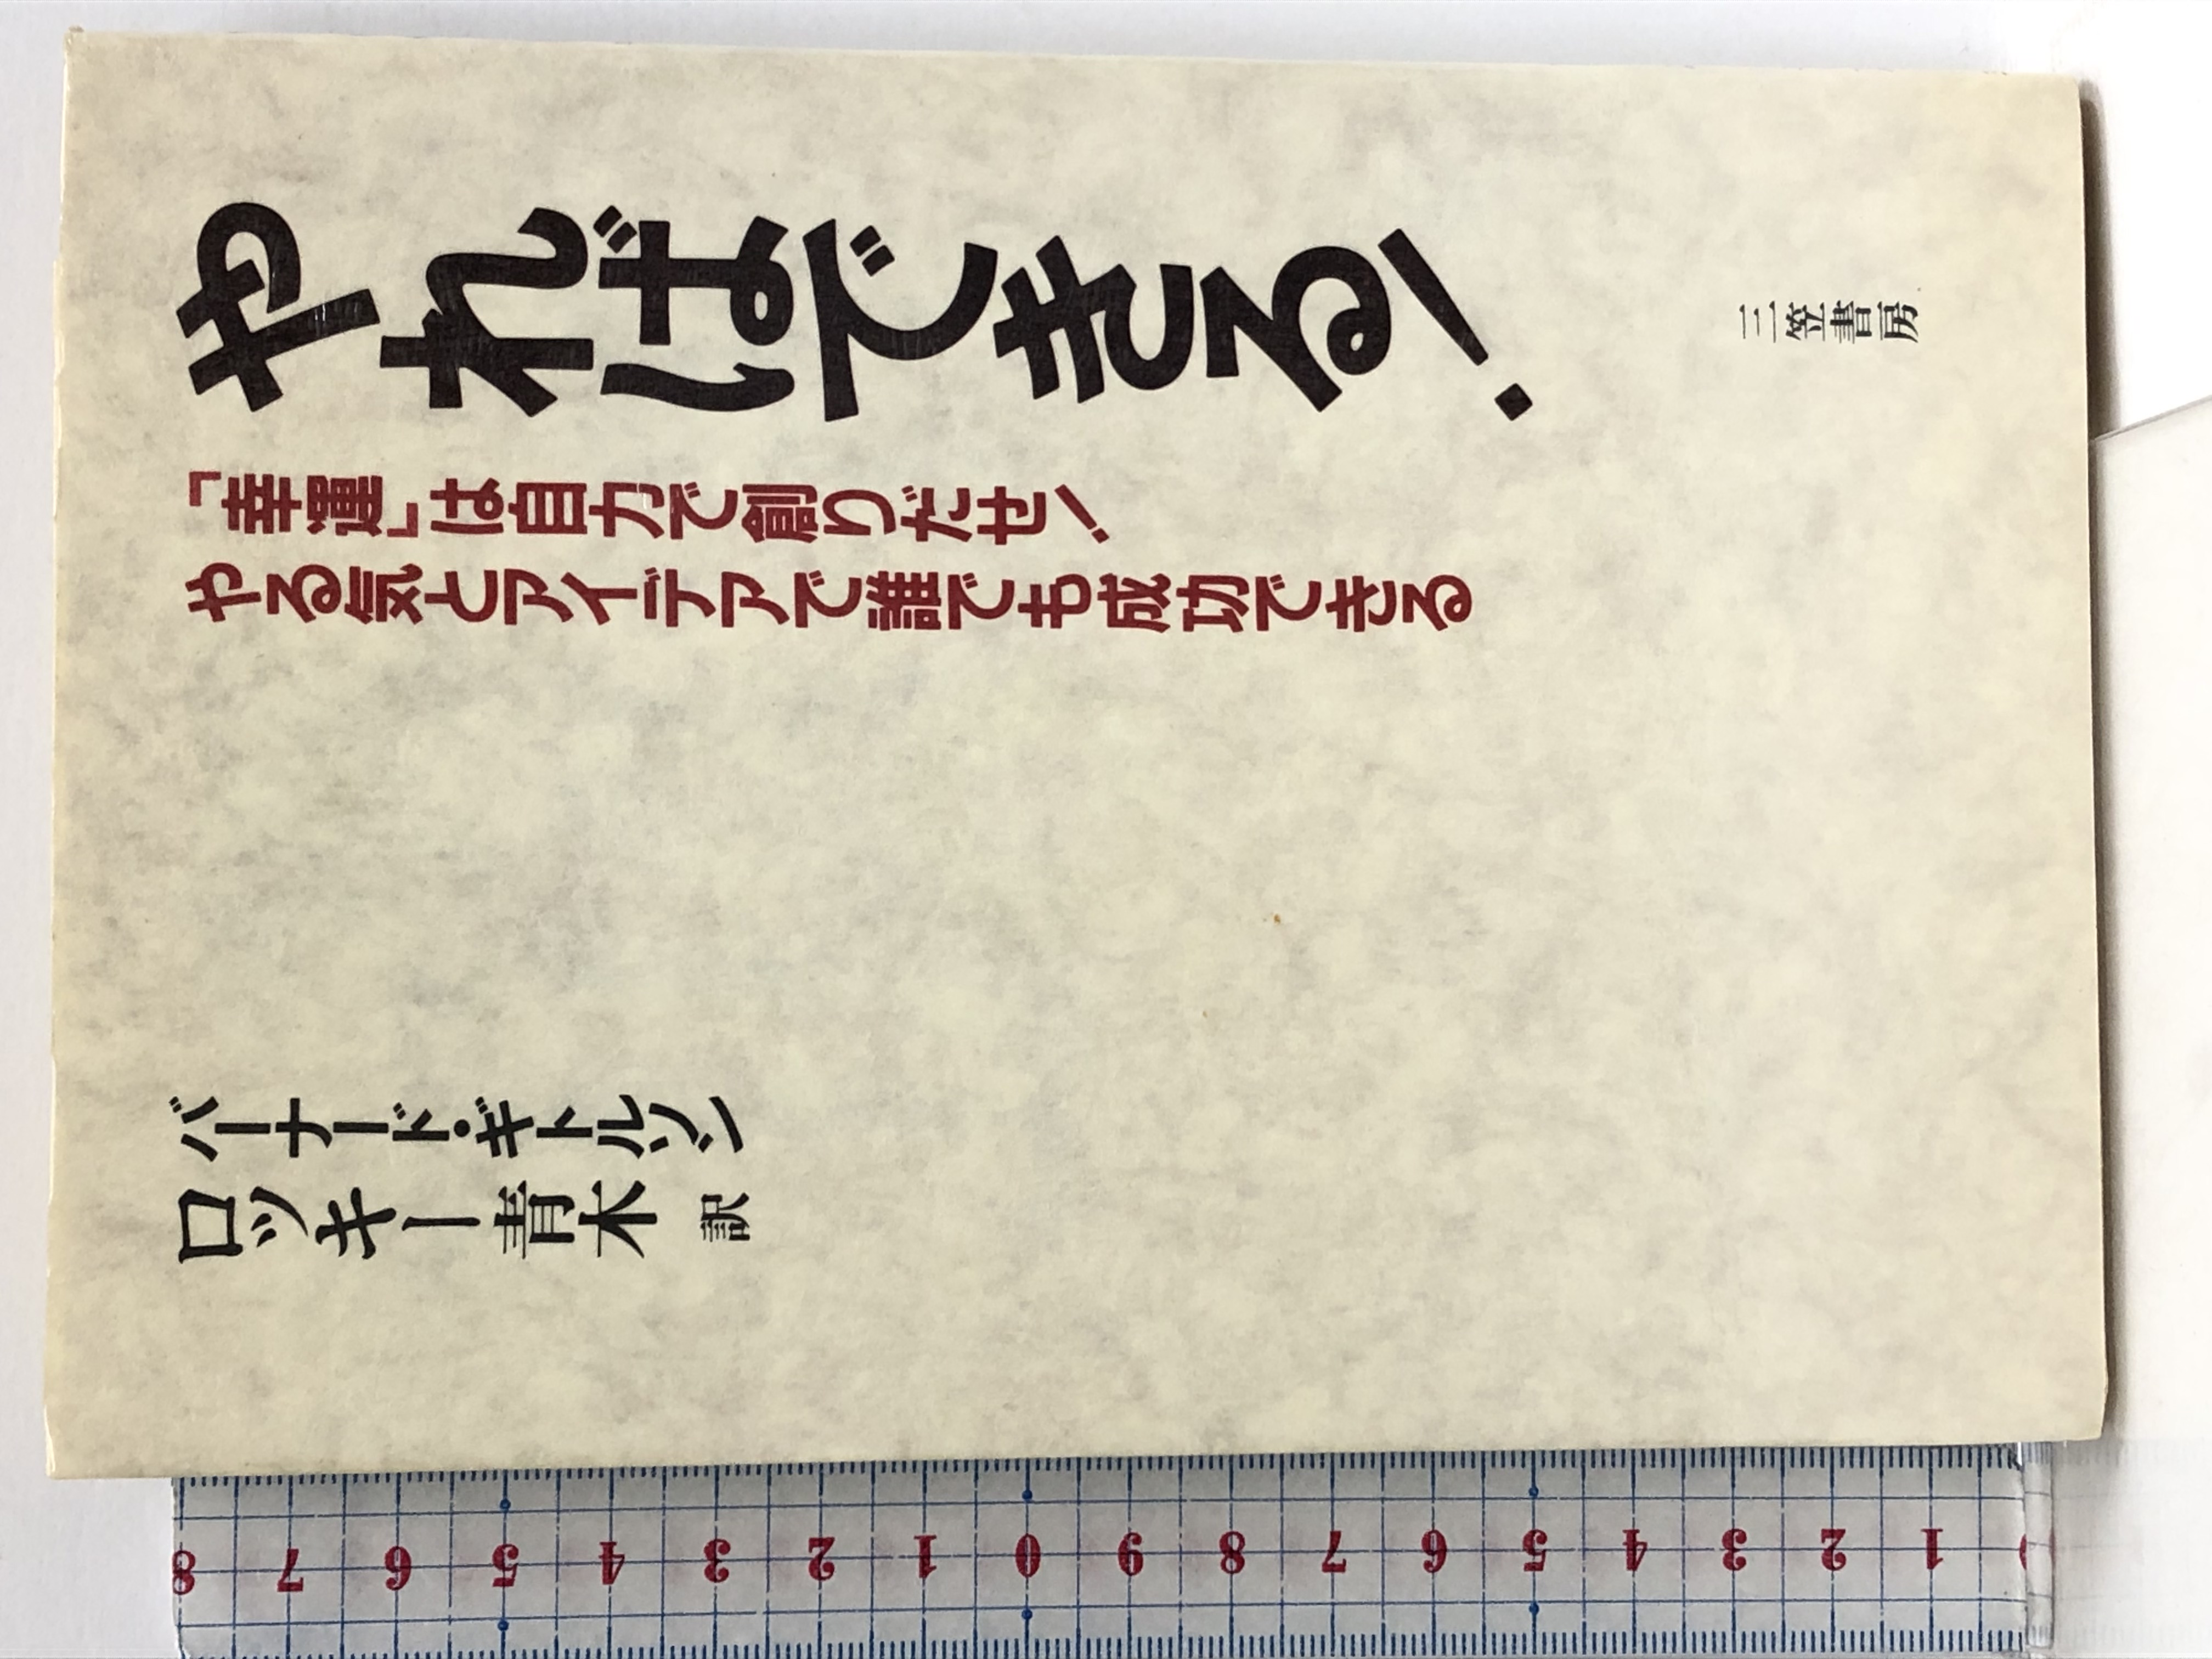 やればできる!
「幸運」は自力で創りだせ!
やる気とアイデアで誰でも成功できる
バーナード・ギトルソン
ロッキー青木 訳
三笠書房
8 7 6 5 4 3 2 1 0 9 8 7 6 5 4 3 2 1